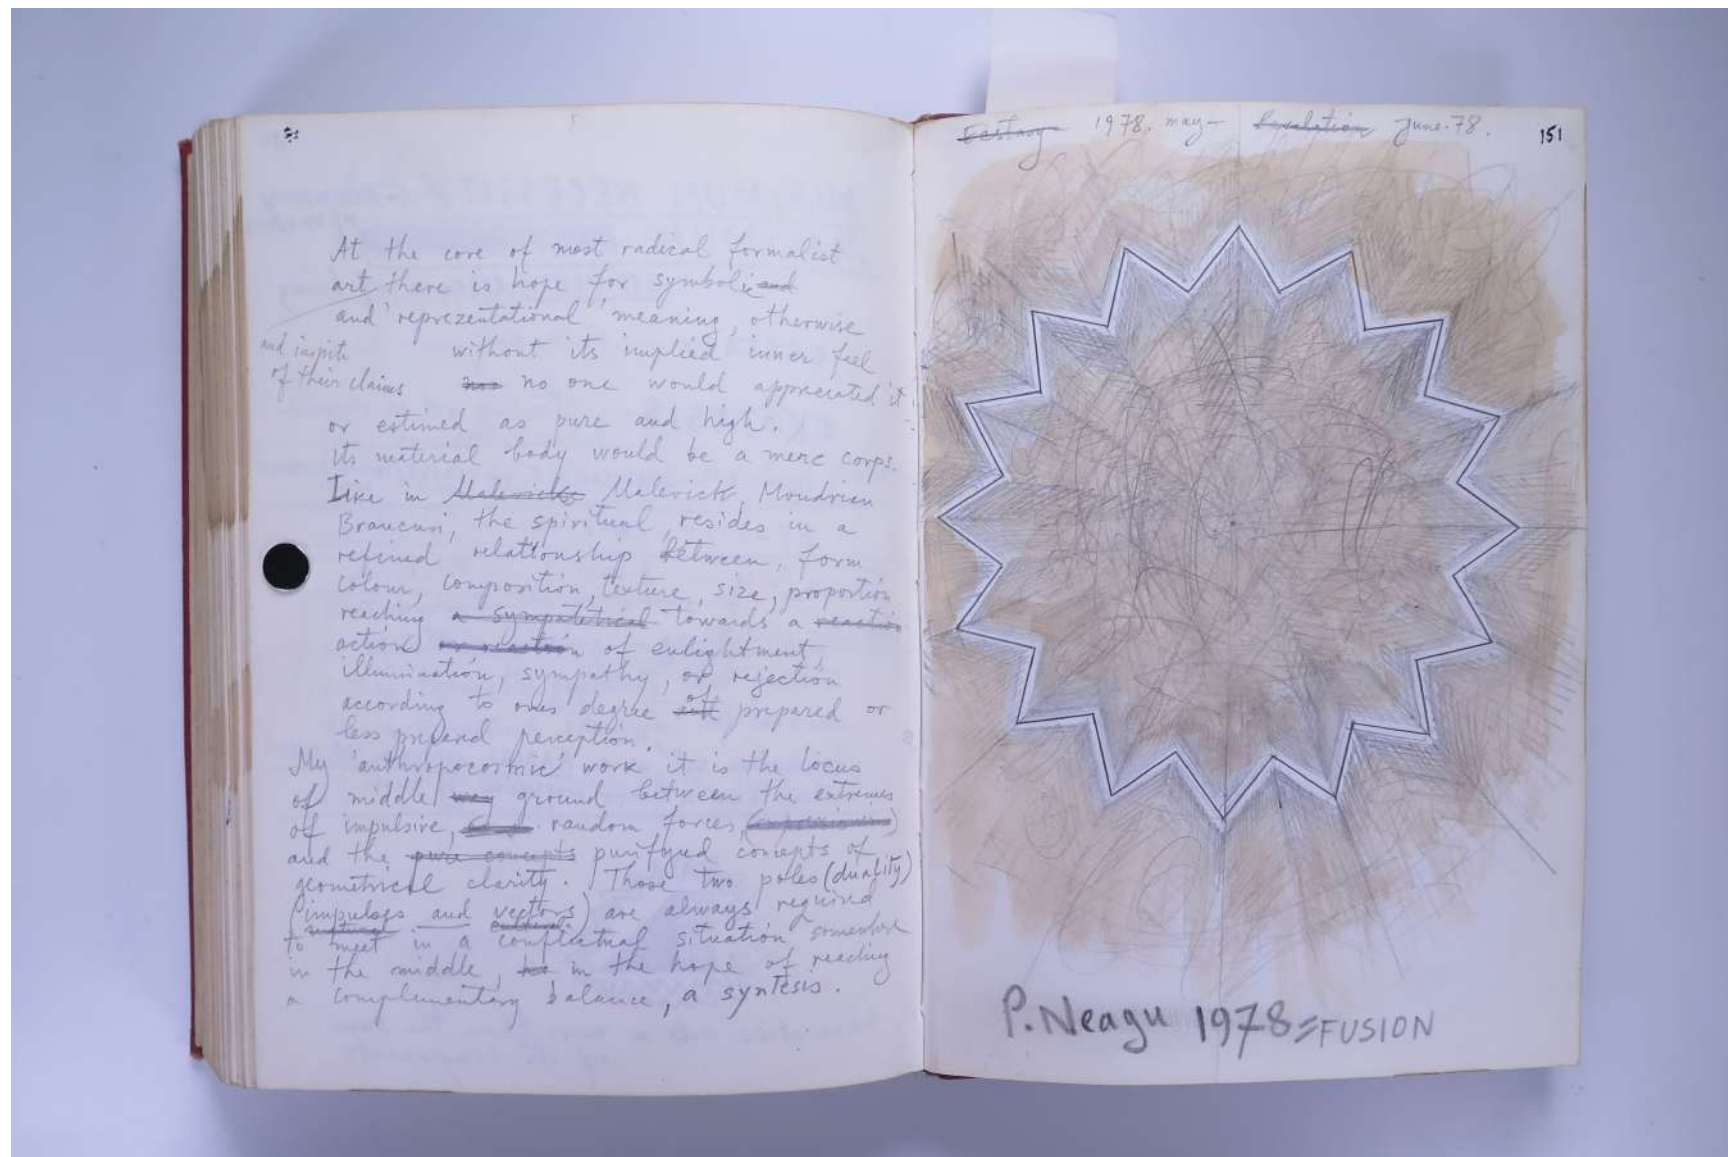 At the core of most radical formalist
art there is hope for symbolic and
and 'reprezentational' meaning, otherwise
and inspite
of their claims
without its implied inner feel
no one would appreciated it,
or estimed as pure and high.
its material body would be a mere corps.
Like in Malevick, Mondrian
Brancusi, the spiritual, resides in a
refined relationship between, form
colour, composition, texture, size, proportion
reaching a sympatetical towards a reaction
action or reaction of enlightment,
illumination, sympathy, or rejection
according to ones degree of prepared or
less prepared perception.
My 'anthropocosmic' work it is the locus
of middle way ground between the extremes
of impulsive, random forces,
and the pure concepts purifyed concepts of
geometrical clarity. Those two poles (duality)
(impulses and vectors) are always required
to meet in a conflictual situation somewhere
in the middle, in the hope of reaching
a complimentary balance, a syntesis.
1978. may- Revelation June.78.
151
P. Neagu 1978=FUSION